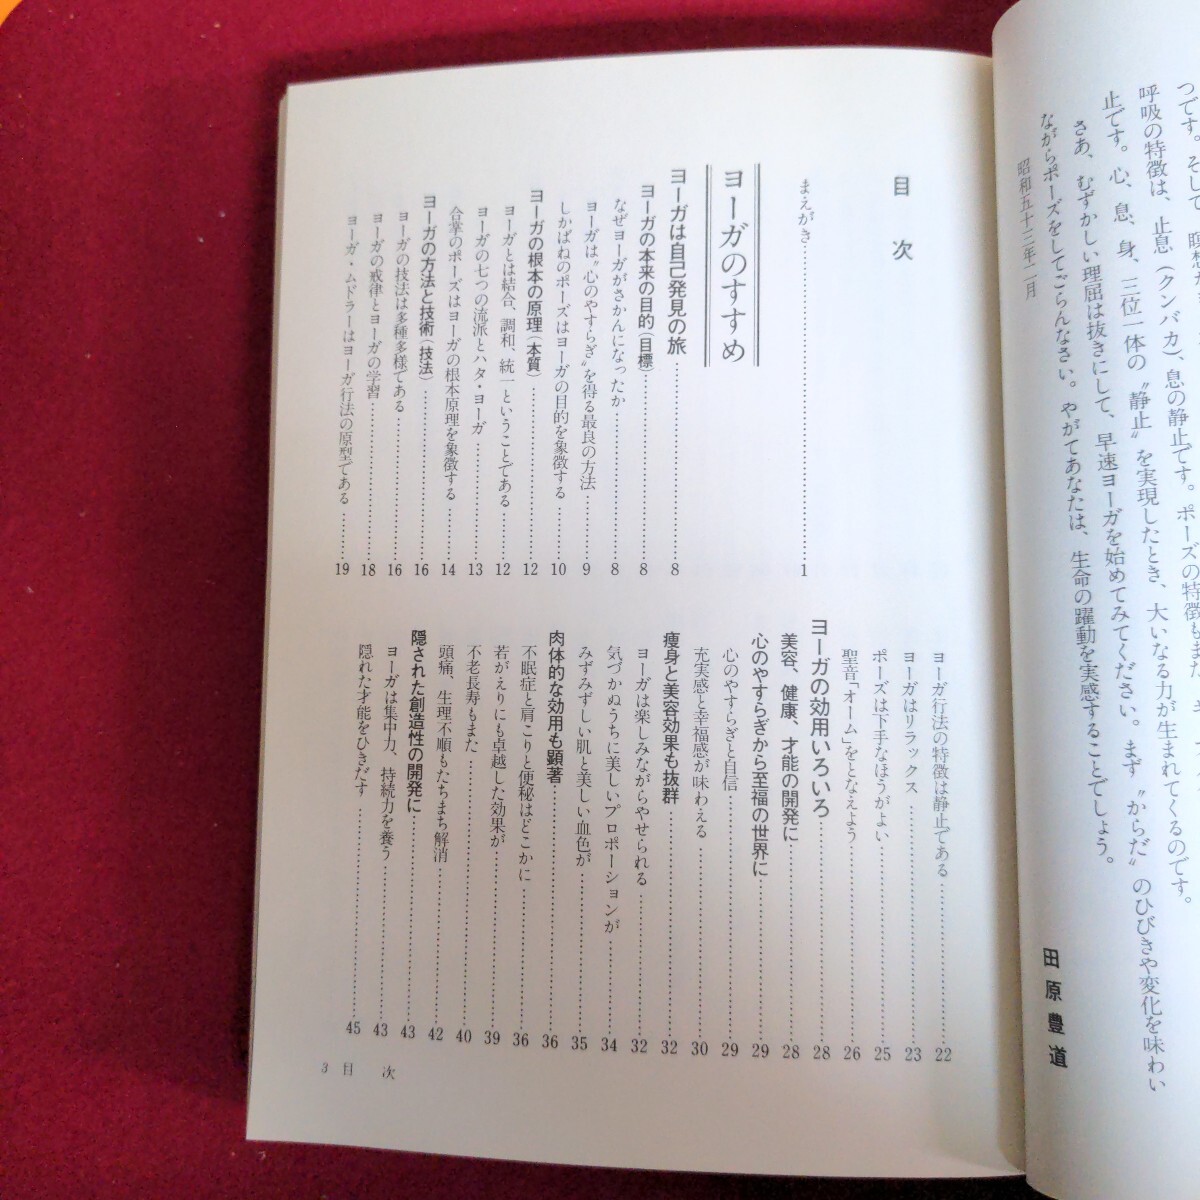 つです。そして、瞑想
呼吸の特徴は、止息（クンバカ）、息の静止です。ポーズの特徴もまた
止です。心、息、身、三位一体の〝静止〟を実現したとき、大いなる力が生まれてくるのです。
さあ、むずかしい理屈は抜きにして、早速ヨーガを始めてみてください。まず〝からだ〟のひびきや変化を味わい
ながらポーズをしてごらんなさい。やがてあなたは、生命の躍動を実感することでしょう。
昭和五十三年二月
田原豊道
目次
まえがき……1
ヨーガのすすめ
ヨーガは自己発見の旅……8
ヨーガの本来の目的（目標）……8
なぜヨーガがさかんになったか……8
ヨーガは〝心のやすらぎ〟を得る最良の方法……9
しかばねのポーズはヨーガの目的を象徴する……10
ヨーガの根本の原理（本質）……12
ヨーガとは結合、調和、統一ということである……12
ヨーガの七つの流派とハタ・ヨーガ……13
合掌のポーズはヨーガの根本原理を象徴する……14
ヨーガの方法と技術（技法）……16
ヨーガの技法は多種多様である……16
ヨーガの戒律とヨーガの学習……18
ヨーガ・ムドラーはヨーガ行法の原型である……19
ヨーガ行法の特徴は静止である……22
ヨーガはリラックス……23
ポーズは下手なほうがよい……25
聖音「オーム」をとなえよう……26
ヨーガの効用いろいろ……28
美容、健康、才能の開発に……28
心のやすらぎから至福の世界に……29
心のやすらぎと自信……29
充実感と幸福感が味わえる……30
痩身と美容効果も抜群……32
ヨーガは楽しみながらやせられる……32
気づかぬうちに美しいプロポーションが……34
みずみずしい肌と美しい血色が……35
肉体的な効用も顕著……36
不眠症と肩こりと便秘はどこかに……36
若がえりにも卓越した効果が……39
不老長寿もまた……40
頭痛、生理不順もたちまち解消……42
隠された創造性の開発に……43
ヨーガは集中力、持続力を養う……43
隠れた才能をひきだす……45
3 目次